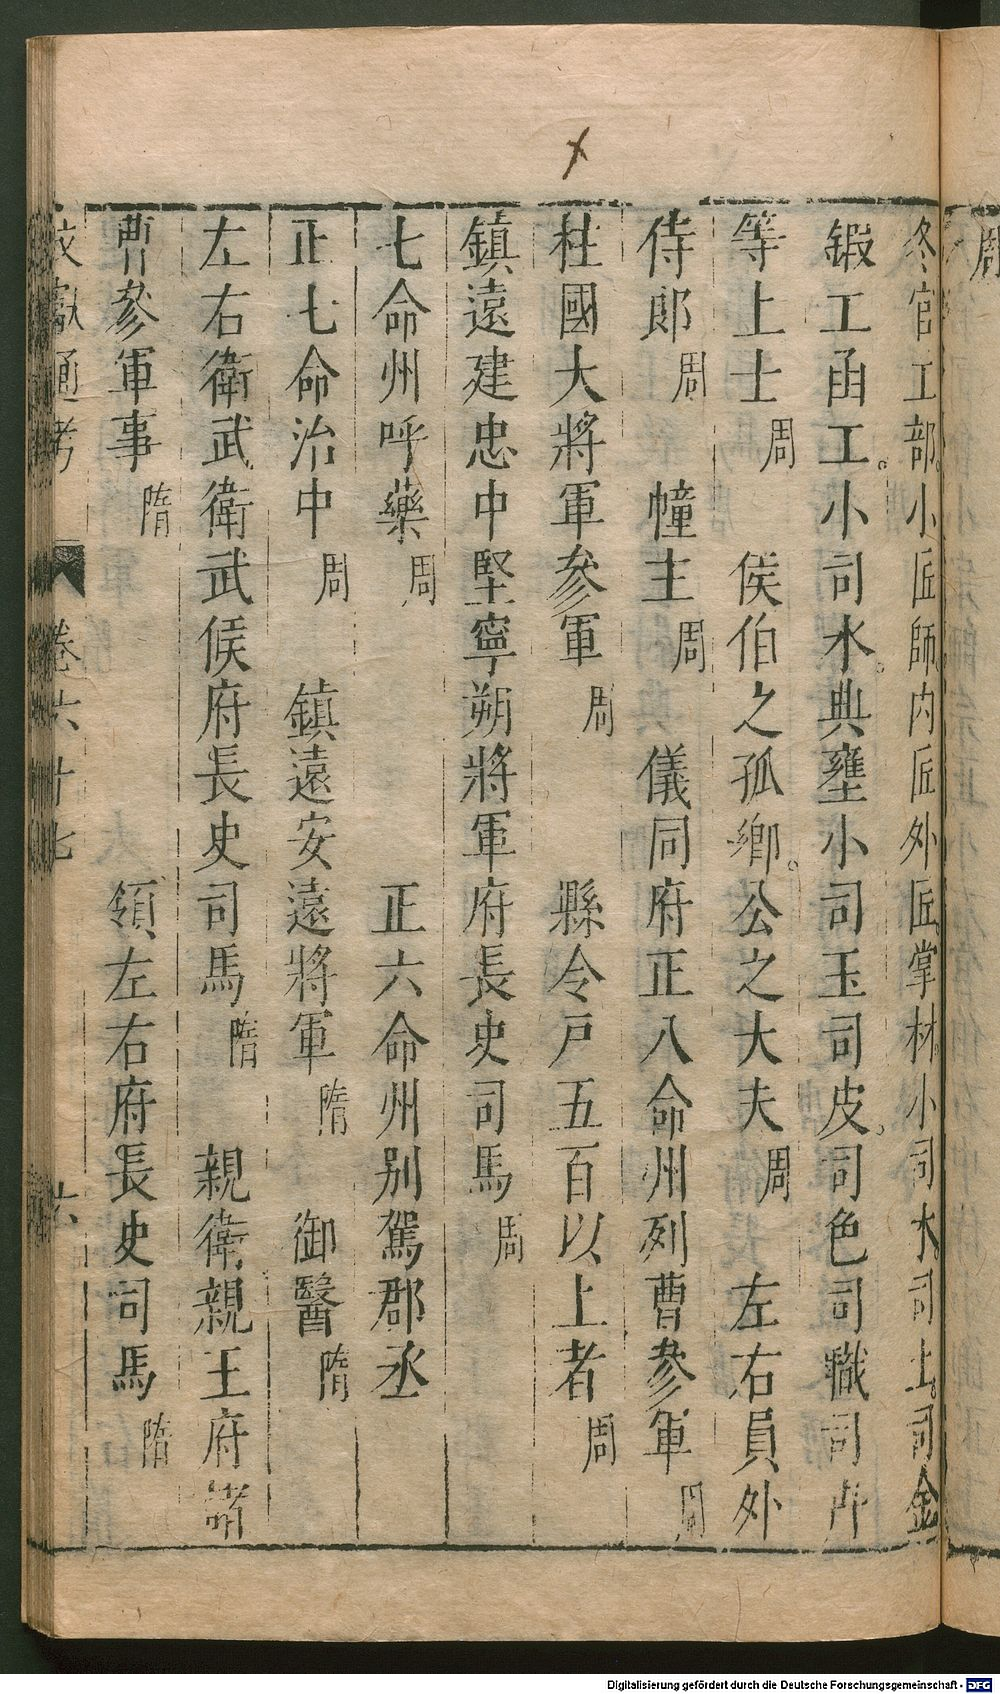 周
冬官工部小匠師內匠外匠掌材小司木司土司金
鍛工函工小司水典壅小司玉司皮司色司織司卉
等上士周 侯伯之孤卿公之大夫周 左右員外
侍郎周 幢主周 儀同府正八命州列曹參軍周
柱國大將軍參軍周 縣令戶五百以上者周
鎮遠建忠中堅寧朔將軍府長史司馬周
七命州呼藥周 正六命州別駕郡丞
正七命治中周 鎮遠安遠將軍隋 御醫隋
左右衛武衛武候府長史司馬隋 親衛親王府諸
曹參軍事隋 領左右府長史司馬隋
文獻通考 卷六十七 六
Digitalisierung gefördert durch die Deutsche Forschungsgemeinschaft - DFG